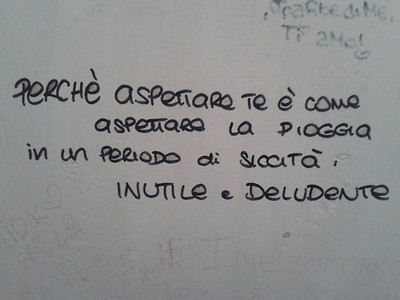 TI AMO!
PERCHÈ ASPETTARE TE È COME
ASPETTARE LA PIOGGIA
in un PERIODO di SICCITÀ.
INUTILE e DELUDENTE